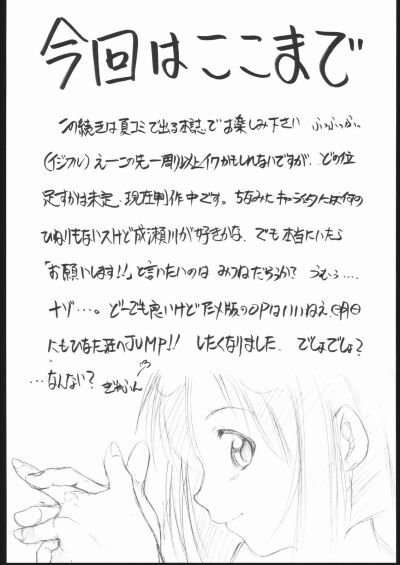 今回はここまで
この続きは夏コミで出る本誌でお楽しみ下さい ふっふっふっ
えーこの先一周り以上イクかもしれないですが、どの位
足すかは未定、現在製作中です。ちなみにキャラ的には何の
ひねりもないスけど成瀬川が好きかな、でも本当にいたら
「お願いします!!」と言いたいのは みつねだろうか? うむぅ…
ナゾ…。どーでも良いけどアニメ版のOPはいいねえ 明日
にもひなた荘へJUMP!! したくなりました、でしょでしょ?
…なんない? ぎゃふん